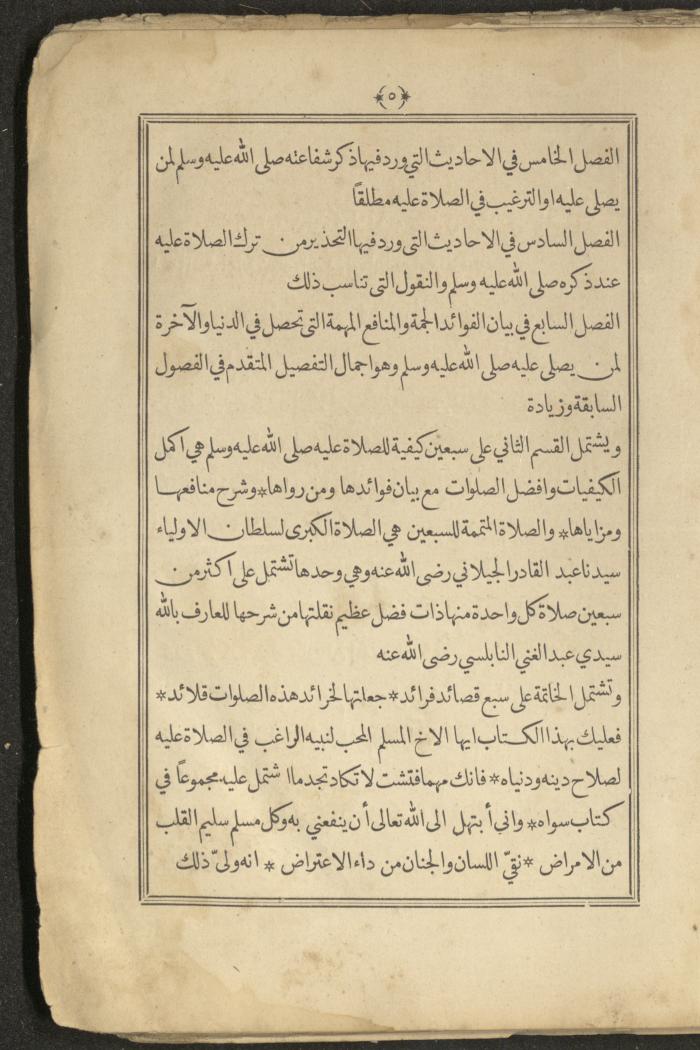 ﴿٥﴾
الفصل الخامس في الاحاديث التي ورد فيها ذكر شفاعته صلى الله عليه وسلم لمن
يصلى عليه او الترغيب في الصلاة عليه مطلقًا
الفصل السادس في الاحاديث التى ورد فيها التحذير من ترك الصلاة عليه
عند ذكره صلى الله عليه وسلم والنقول التى تناسب ذلك
الفصل السابع في بيان الفوائد الجمة والمنافع المهمة التى تحصل في الدنيا والآخرة
لمن يصلى عليه صلى الله عليه وسلم وهو اجمال التفصيل المتقدم في الفصول
السابقة وزيادة
ويشتمل القسم الثاني على سبعين كيفية للصلاة عليه صلى الله عليه وسلم هي اكمل
الكيفيات وافضل الصلوات مع بيان فوائدها ومن رواها * وشرح منافعها
ومزاياها * والصلاة المتممة للسبعين هي الصلاة الكبرى لسلطان الاولياء
سيدنا عبد القادر الجيلاني رضى الله عنه وهي وحدها تشتمل على اكثر من
سبعين صلاة كل واحدة منها ذات فضل عظيم نقلتها من شرحها للعارف بالله
سيدي عبد الغني النابلسي رضى الله عنه
وتشتمل الخاتمة على سبع قصائد فرائد * جعلتها لخرائد هذه الصلوات قلائد *
فعليك بهذا الكتاب ايها الاخ المسلم المحب لنبيه الراغب في الصلاة عليه
لصلاح دينه ودنياه * فانك مهما فتشت لا تكاد تجد ما اشتمل عليه مجموعاً في
كتاب سواه * واني أبتهل الى الله تعالى أن ينفعني به وكل مسلم سليم القلب
من الامراض * نقيّ اللسان والجنان من داء الاعتراض * انه وليّ ذلك